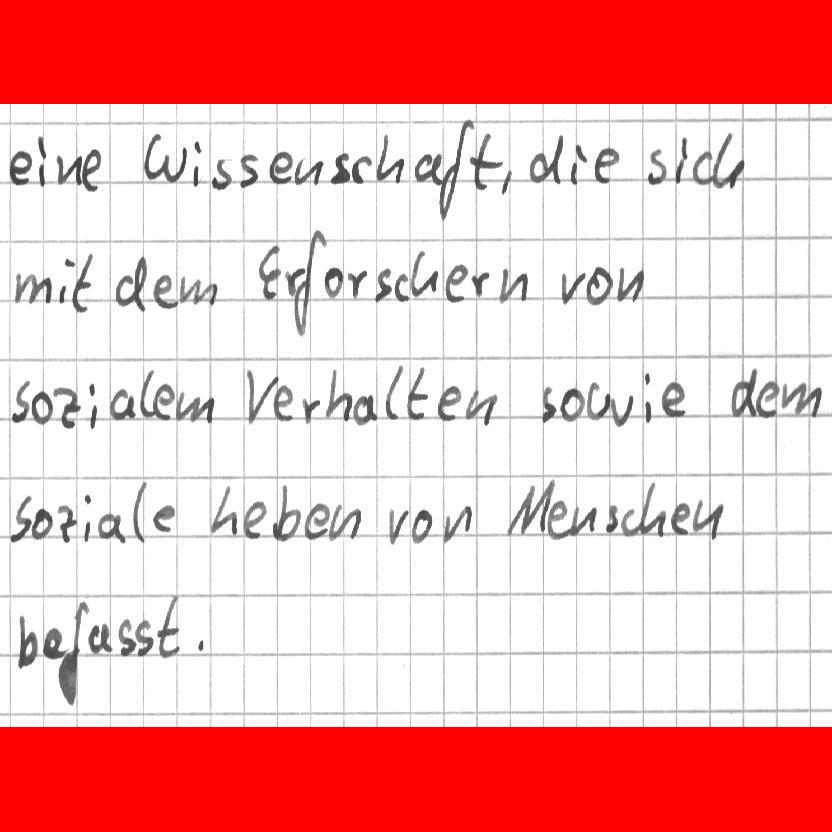 eine Wissenschaft, die sich
mit dem Erforschern von
sozialem Verhalten sowie dem
soziale heben von Menschen
befasst.